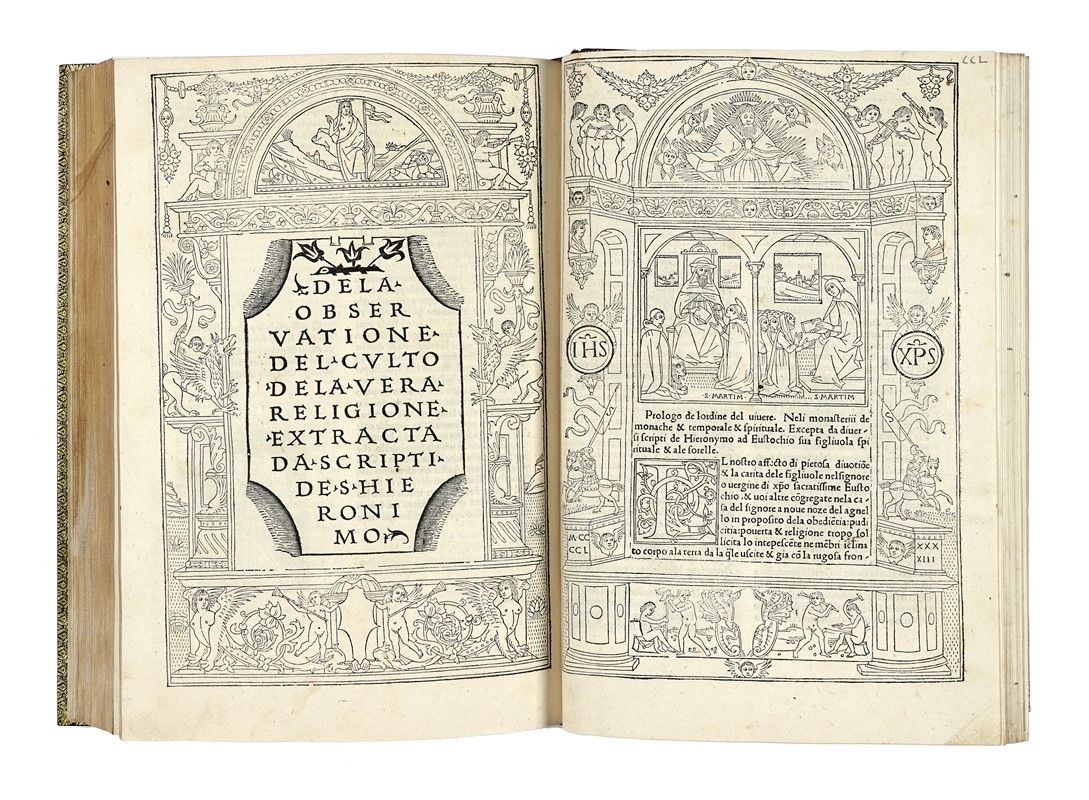 DE LA
OBSER
VATIONE
DEL CVLTO
DE LA VERA
RELIGIONE
EXTRACTA
DA SCRIPTI
DE S HIE
RONI
MO
CCL
IHS
XPS
·S·MARTIM· S·MARTIM
Prologo de lordine del uiuere. Neli monasterii de
monache & temporale & spirituale. Excepta da diuer-
si scripti de Hieronymo ad Eustochio sua figliuola spi
rituale & ale sorelle.
L nostro affecto di pietosa diuotiõe
& la carita dele figliuole nelsignore
o uergine di xp̃o sacratissime Eusto
chio .& uoi altre cõgregate nela ca-
sa del signore a noue noze del agnel
lo in proposito dela obediẽtia: pudi
citia: pouerta & religione tropo sol
licita lo intepescẽte ne mẽbri iclina
to corpo ala terra da la q̃le uscite & gia cõ la rugosa fron-
MCC
CCL
XXX
XIII